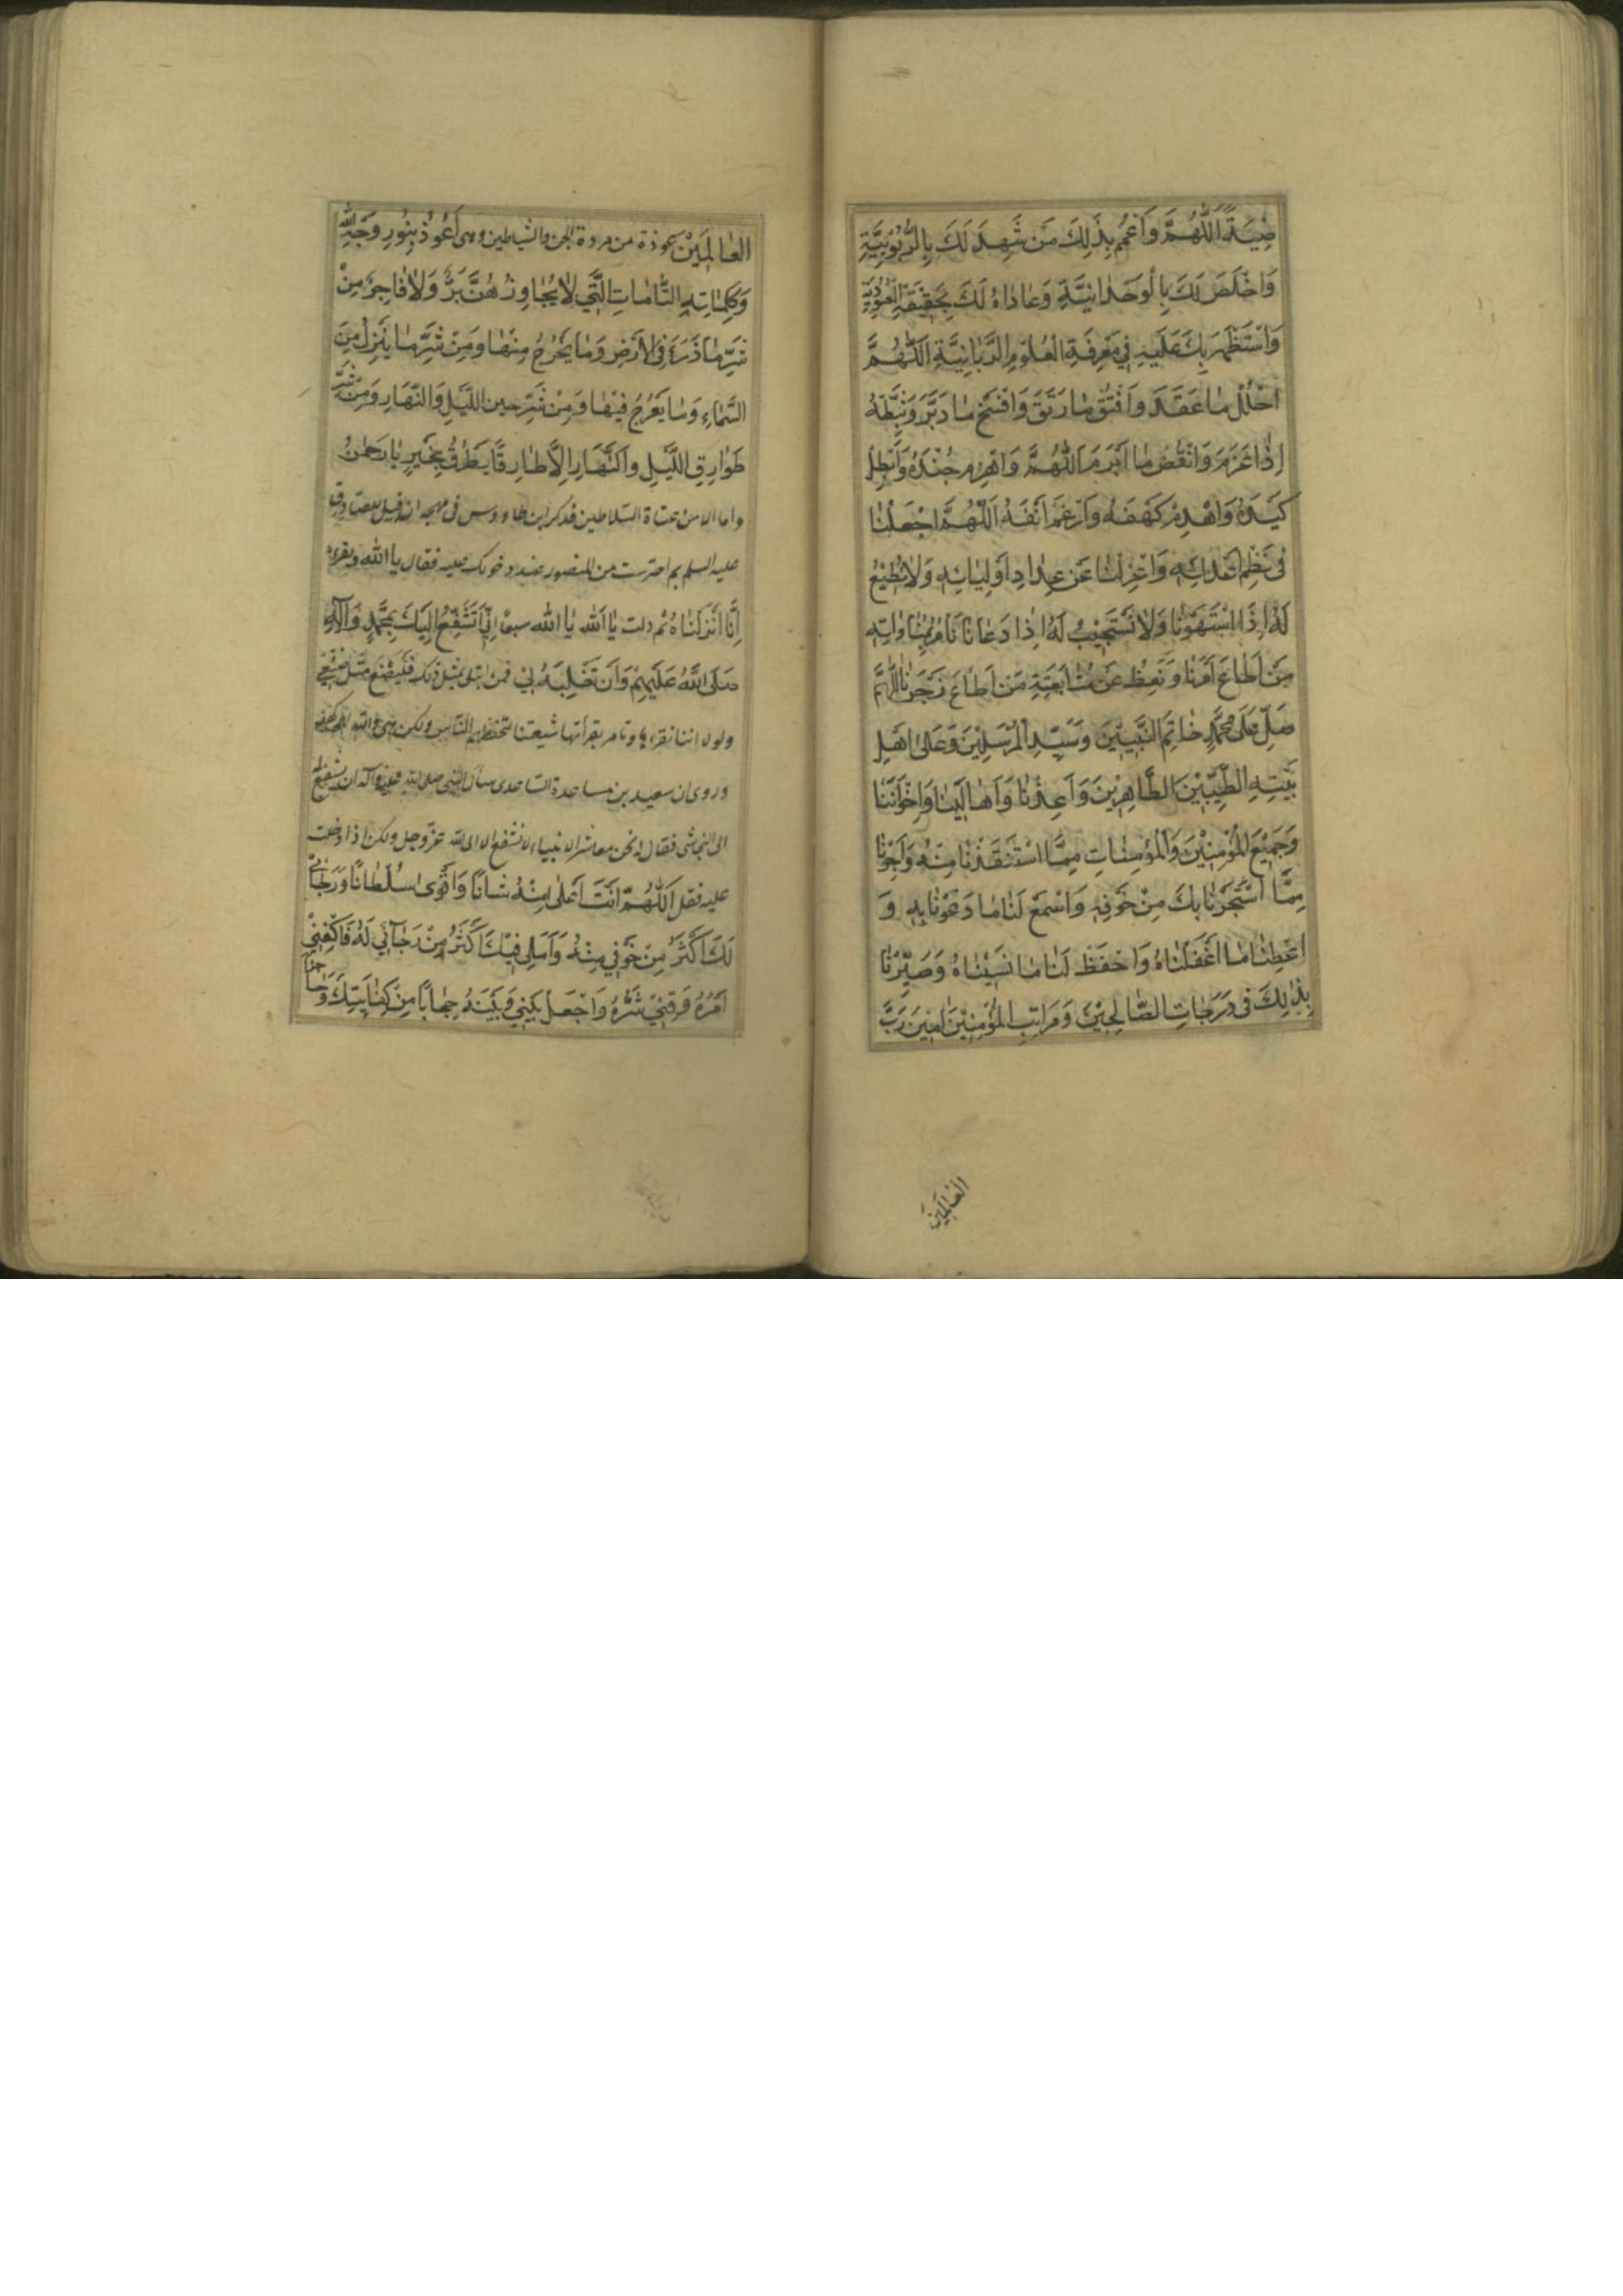 ضِيَةً اَللّٰهُمَّ وَاعْمُمْ بِذٰلِكَ مَنْ شَهِدَ لَكَ بِالرُّبُوْبِيَّةِ
وَاَخْلَصَ لَكَ بِالْوَحْدَانِيَّةِ وَعَادَاهُ لَكَ بِحَقِيْقَةِ الْعُبُوْدِيَّةِ
وَاسْتَظْهَرَ بِكَ عَلَيْهِ فِيْ مَعْرِفَةِ الْعُلُوْمِ الرَّبَّانِيَّةِ اَللّٰهُمَّ
احْلُلْ مَا عَقَدَ وَافْتُقْ مَا رَتَقَ وَافْسَخْ مَا دَبَّرَ وَثَبِّطْهُ
اِذَا عَزَمَ وَانْقُضْ مَا اَبْرَمَ اَللّٰهُمَّ وَاهْزِمْ جُنْدَهُ وَاَبْطِلْ
كَيْدَهُ وَاهْدِمْ كَهْفَهُ وَاَرْغِمْ اَنْفَهُ اَللّٰهُمَّ اجْعَلْنَا
فِيْ نَظْمِ اَعْدَائِهِ وَاعْزِلْنَا عَنْ عِدَادِ اَوْلِيَائِهِ وَلَا نُطِيْعُ
لَهُ اِذَا اسْتَهْوَانَا وَلَا نَسْتَجِيْبُ لَهُ اِذَا دَعَانَا نَأْمُرُ بِمُنَاوَاتِهِ
مَنْ اَطَاعَ اَمْرَنَا وَنَعِظُ عَنْ مُتَابَعَتِهِ مَنْ اَطَاعَ زَجْرَنَا اَللّٰهُمَّ
صَلِّ عَلٰى مُحَمَّدٍ خَاتَمِ النَّبِيِّيْنَ وَسَيِّدِ الْمُرْسَلِيْنَ وَعَلٰى اَهْلِ
بَيْتِهِ الطَّيِّبِيْنَ الطَّاهِرِيْنَ وَاَعِذْنَا وَاَهَالِيْنَا وَاِخْوَانَنَا
وَجَمِيْعَ الْمُؤْمِنِيْنَ وَالْمُؤْمِنَاتِ مِمَّا اسْتَنْقَذْنَا مِنْهُ وَاَجِرْنَا
مِمَّا اسْتَجَرْنَا بِكَ مِنْ خَوْفِهِ وَاسْمَعْ لَنَا مَا دَعَوْنَا بِهِ وَ
اَعْطِنَا مَا اَغْفَلْنَاهُ وَاحْفَظْ لَنَا مَا نَسِيْنَاهُ وَصَيِّرْنَا
بِذٰلِكَ فِيْ دَرَجَاتِ الصَّالِحِيْنَ وَمَرَاتِبِ الْمُؤْمِنِيْنَ اٰمِيْنَ رَبَّ
الْعَالَمِيْنَ
الْعَالَمِيْنَ عوذة من مردة الجن والشياطين وهى اَعُوْذُ بِنُوْرِ وَجْهِ اللّٰهِ
وَكَلِمَاتِهِ التَّامَّاتِ الَّتِيْ لَا يُجَاوِزُهُنَّ بَرٌّ وَلَا فَاجِرٌ مِنْ
شَرِّ مَا ذَرَءَ فِى الْاَرْضِ وَمَا يَخْرُجُ مِنْهَا وَمِنْ شَرِّ مَا يَنْزِلُ مِنَ
السَّمَاءِ وَمَا يَعْرُجُ فِيْهَا وَمِنْ شَرِّ حين اللَّيْلِ وَالنَّهَارِ وَمِنْ شَرِّ
طَوَارِقِ اللَّيْلِ وَالنَّهَارِ اِلَّا طَارِقًا يَطْرُقُ بِخَيْرٍ يَا رَحْمٰنُ
واما الامن عتاة السلاطين فذكر ابن طاووس فى مهجه ان قيل للصادق
عليه السلم بم احترست من المنصور عند دخولك عليه فقال يا الله وبقراءة
اِنَّا اَنْزَلْنَاهُ ثم قلت يَا اَللّٰه يَا اَللّٰه سبعًا اِنِّيْ اَتَشَفَّعُ اِلَيْكَ بِمُحَمَّدٍ وَاٰلِهِ
صَلَى اللّٰهُ عَلَيْهِمْ وَاَنْ تَغْلِبَهُ لِيْ فمن ابتلى بمثل ذلك فليصنع مثل صنيعى
ولولا اننا نقراها ونامر بقرائتها شيعتنا لتخطفهم الناس ولكن هى والله لهم كهف
وروى ان سعيد بن مساعدة الساعدى سال النبى صلى الله عليه وآله ان يشفع له
الى النجاشى فقال له نحن معاشر الانبياء لا نشفع الا الى الله عز وجل ولكن اذا دخلت
عليه فقل اَللّٰهُمَّ اَنْتَ اَعْلٰى مِنْهُ شَانًا وَاَقْوٰى سُلْطَانًا وَرَجَائِيْ
لَكَ اَكْثَرُ مِنْ خَوْفِيْ مِنْهُ وَاَمَلِيْ فِيْكَ اَكْثَرُ مِنْ رَجَائِيْ لَهُ فَاكْفِنِيْ
اَمْرَهُ وَقِنِيْ شَرَّهُ وَاجْعَلْ بَيْنِيْ وَبَيْنَهُ حِجَابًا مِنْ كِفَايَتِكَ وَحَاجِزًا